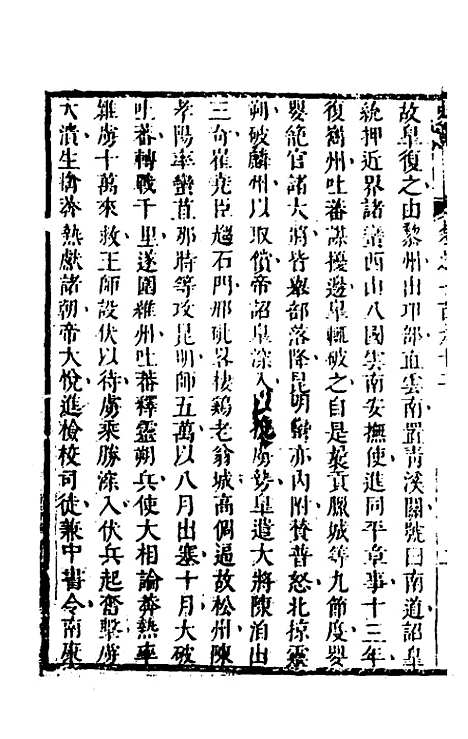 故皐復之由黎州出邛部直雲南置靑溪關號曰南道詔皐
統押近界諸蠻西山八國雲南安撫使進同平章事十三年
復巂州吐蕃謀擾邊皐輒破之自是曩貢臘城等九節度嬰
嬰籠官諸大將皆舉部落降昆明蠻亦内附贊普怒北掠靈
朔破麟州以取償帝詔皐深入 虜勢皐遣大將陳洎出
三奇崔堯臣趨石門邢玼畧棲鷄老翁城高倜逼故松州陳
孝陽率蠻苴那時等攻昆明師五萬以八月出塞十月大破
吐蕃轉戰千里遂圍維州吐蕃釋靈朔兵使大相論莽熱率
雜虜十萬來救王師設伏以待虜乘勝深入伏兵起奮擊虜
大潰生擒莽熱獻諸朝帝大悅進檢校司徒兼中書令南康